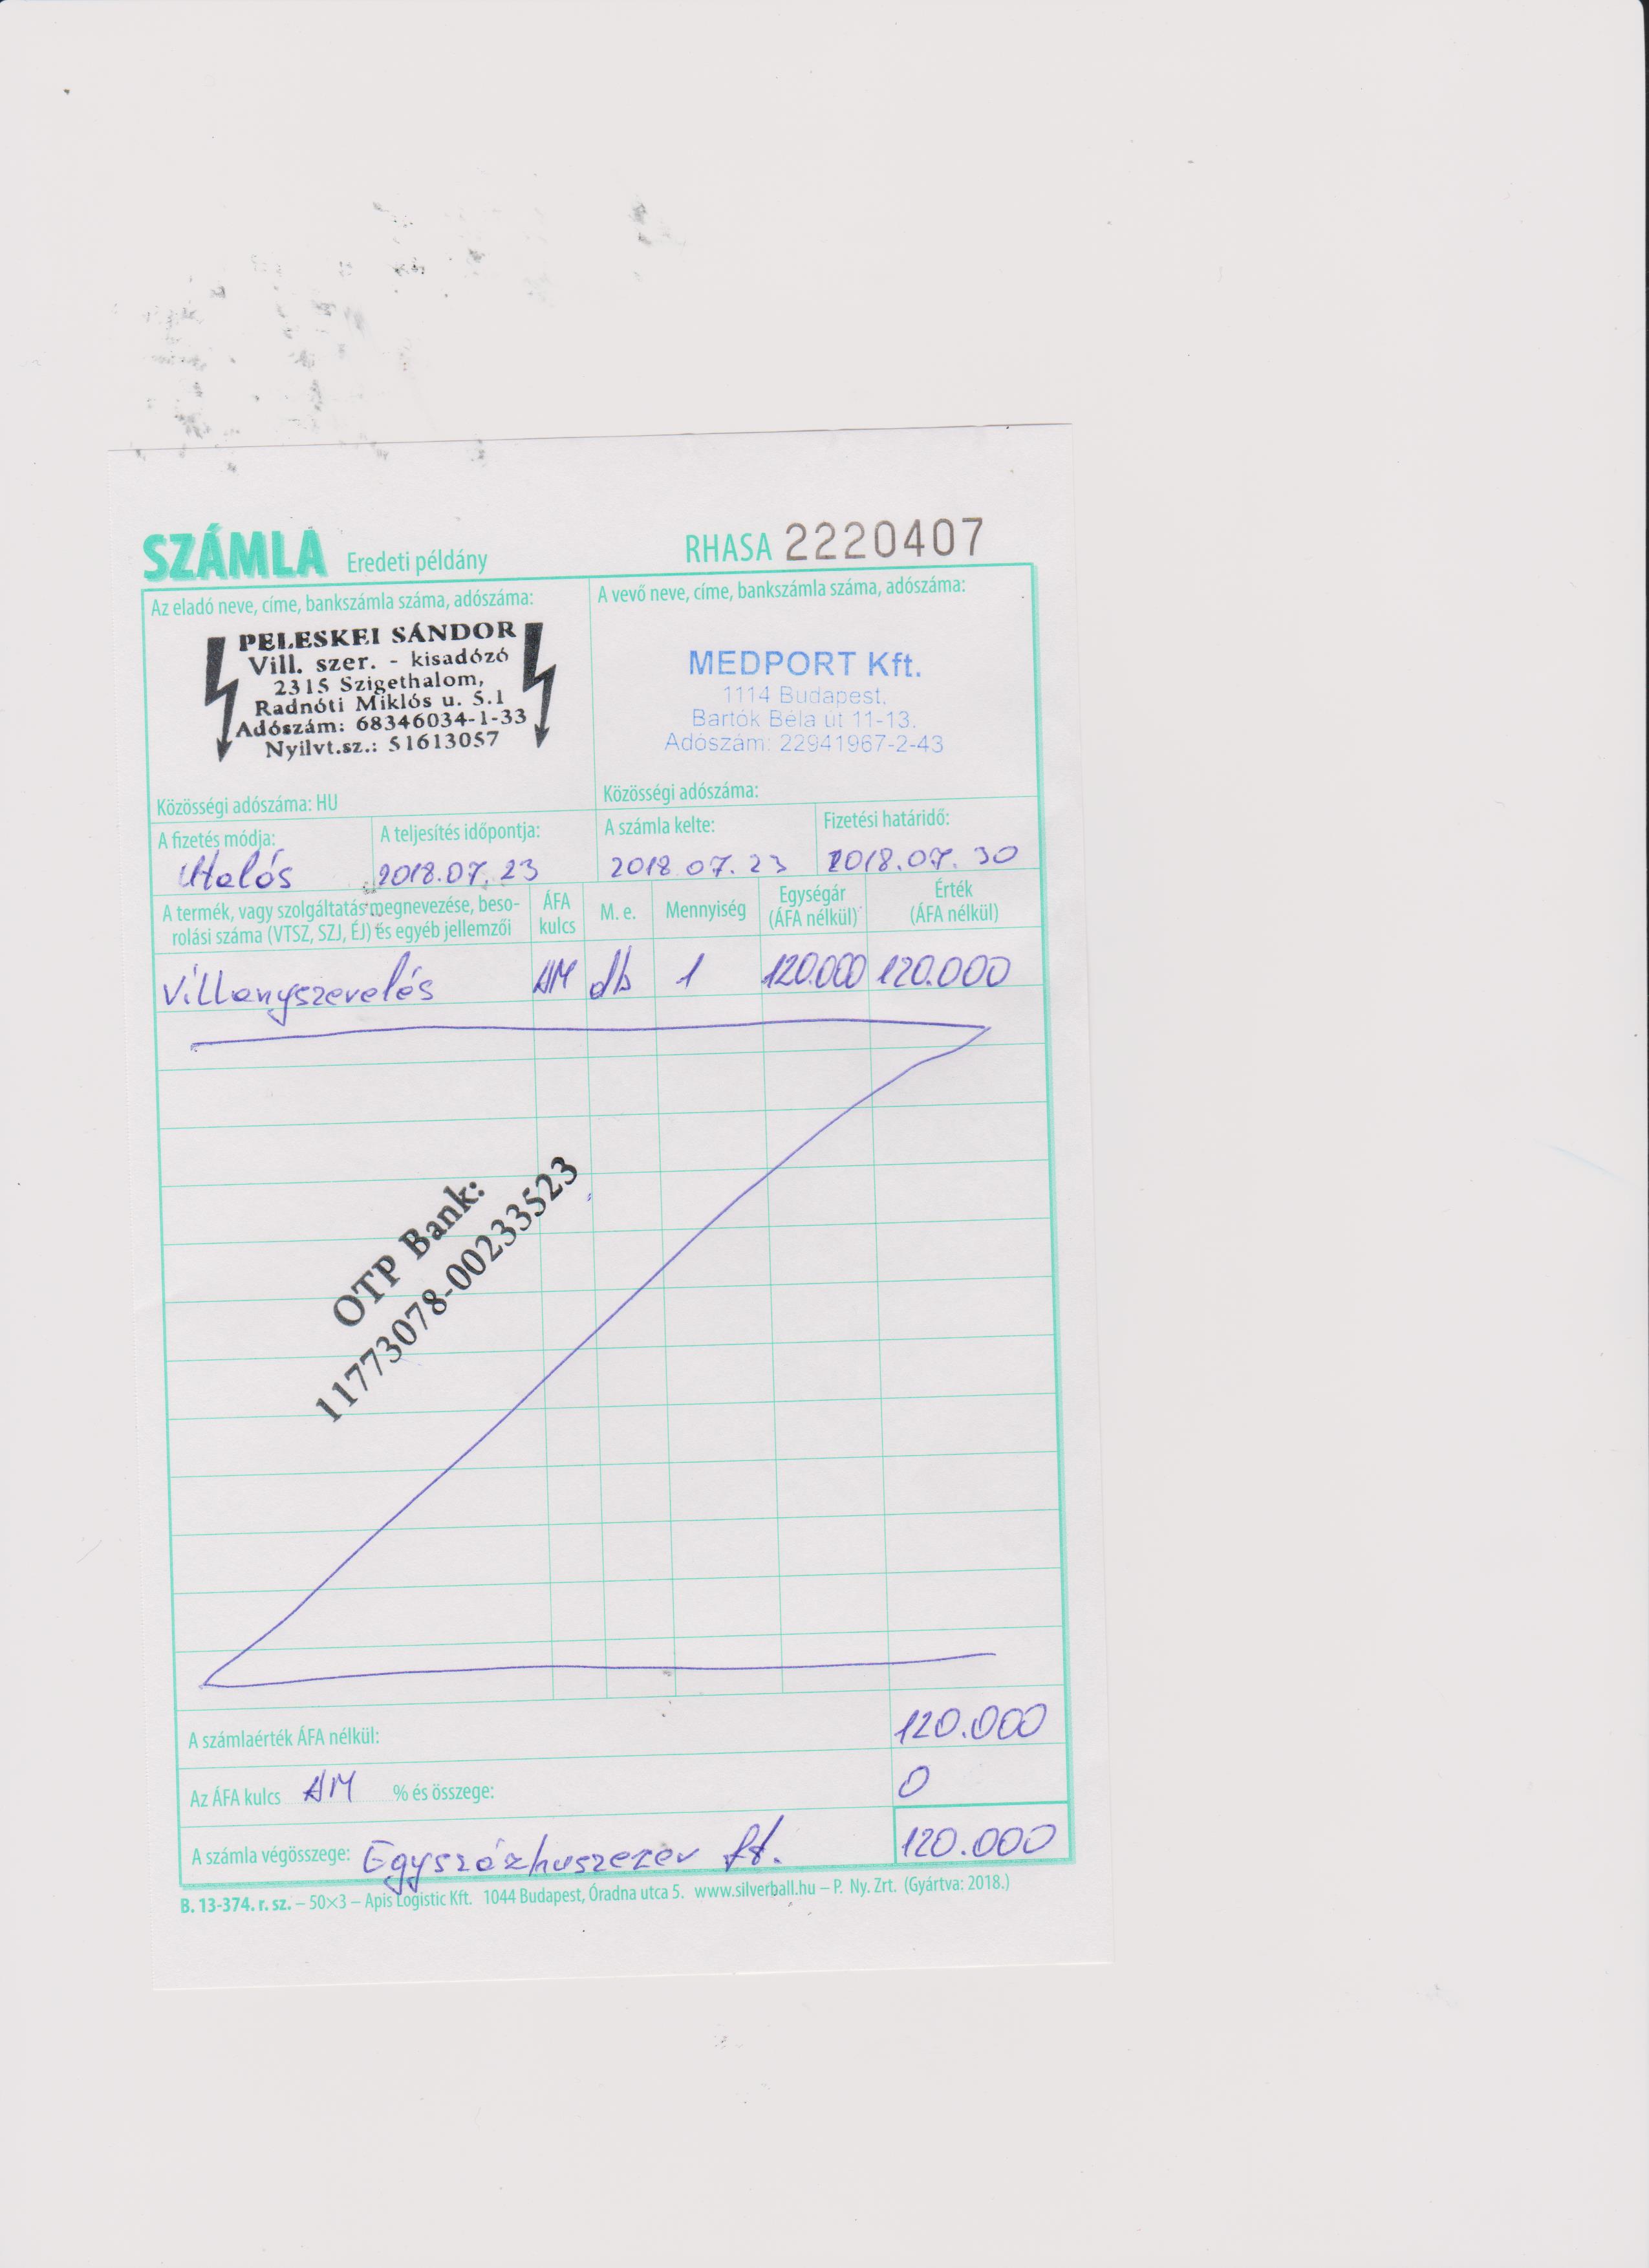 SZÁMLA Eredeti példány RHASA 2220407
Az eladó neve, címe, bankszámla száma, adószáma:
PELESKEI SÁNDOR
Vill. szer. - kisadózó
2315 Szigethalom,
Radnóti Miklós u. 5.1
Adószám: 68346034-1-33
Nyilvt.sz.: 51613057
Közösségi adószáma: HU
A vevő neve, címe, bankszámla száma, adószáma:
MEDPORT Kft.
1114 Budapest,
Bartók Béla út 11-13.
Adószám: 22941967-2-43
Közösségi adószáma:
A fizetés módja:
Utalás
A teljesítés időpontja:
2018.07.23
A számla kelte:
2018.07.23
Fizetési határidő:
2018.07.30
A termék, vagy szolgáltatás megnevezése, beso-
rolási száma (VTSZ, SZJ, ÉJ) és egyéb jellemzői
ÁFA
kulcs
M. e.
Mennyiség
Egységár
(ÁFA nélkül)
Érték
(ÁFA nélkül)
Villanyszerelés AM db 1 120.000 120.000
OTP Bank:
11773078-00233523
A számlaérték ÁFA nélkül: 120.000
Az ÁFA kulcs AM % és összege: 0
A számla végösszege: Egyszázhuszezer ft. 120.000
B. 13-374. r. sz. – 50×3 – Apis Logistic Kft. 1044 Budapest, Óradna utca 5. www.silverball.hu – P. Ny. Zrt. (Gyártva: 2018.)